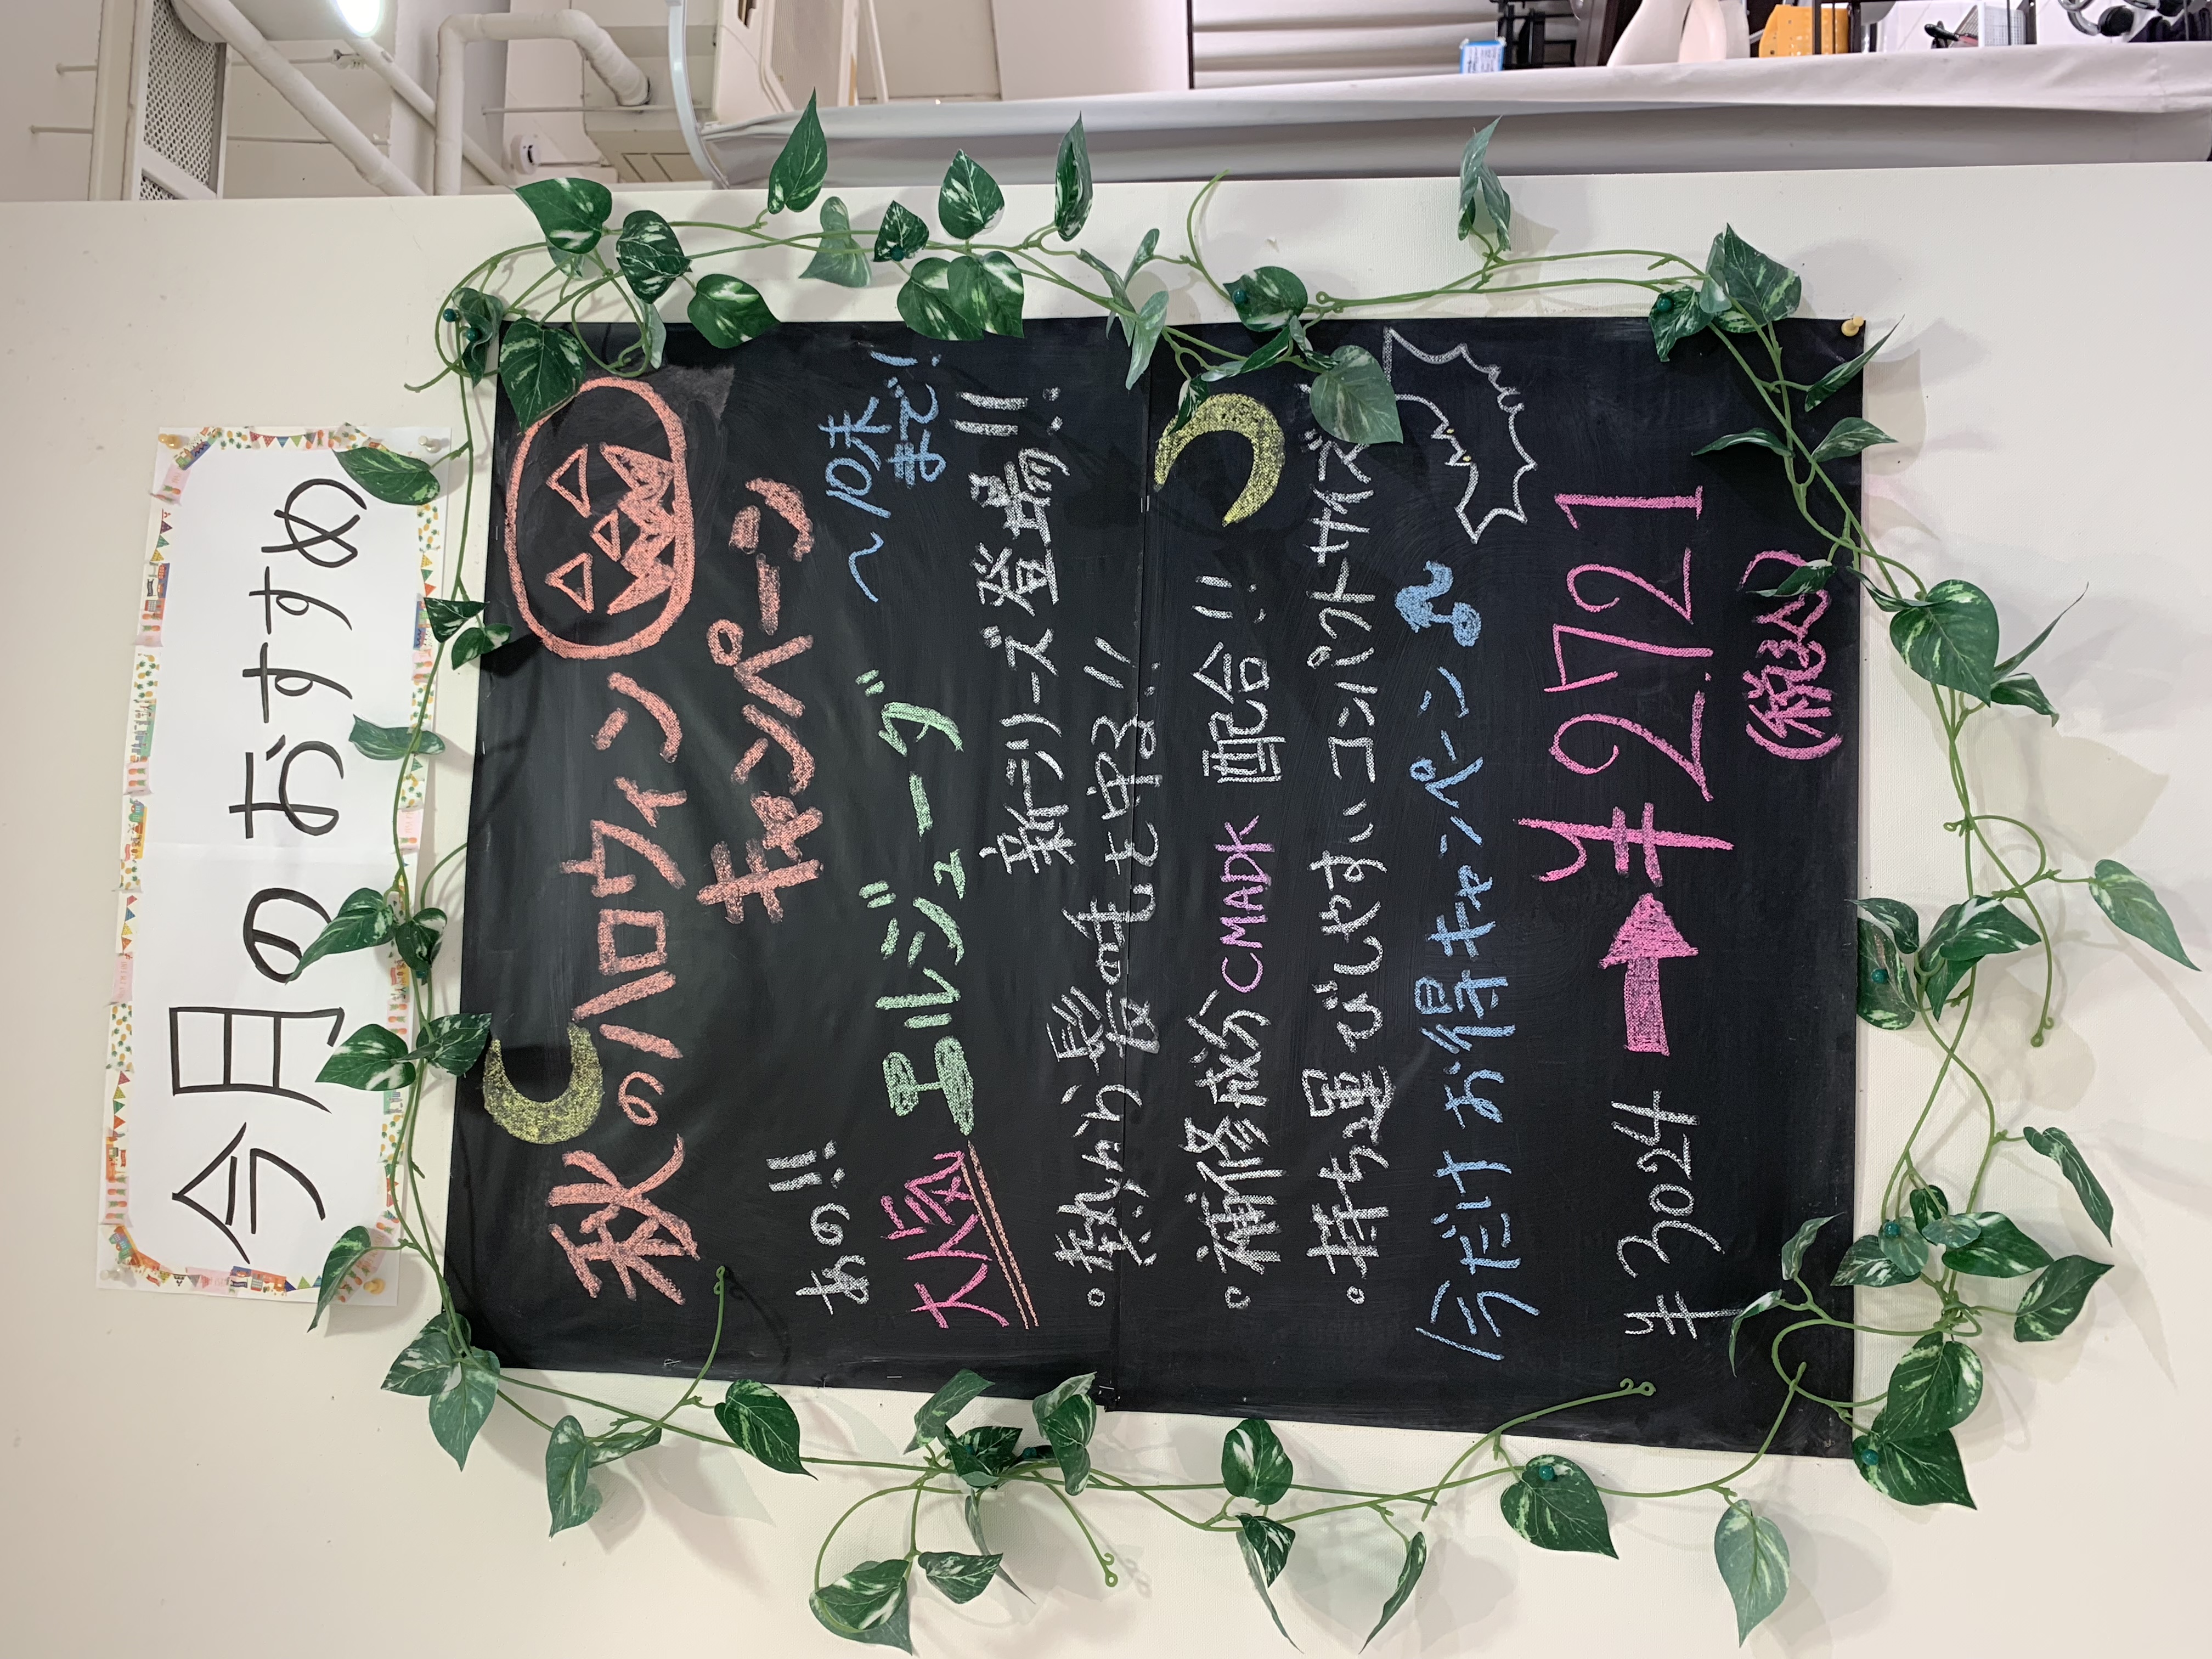 今月のおすすめ
秋のハロウィン
キャンペーン
〜10末
まで!
あの!!
大人気 エルジューダ
新シリーズ登場!!
熱から髪の芯を守る!!
補修成分 CMADK 配合!!
持ち運びしやすいコンパクトサイズ
今だけお得キャンペーン
¥3024 ➡ ¥2721
(税込)